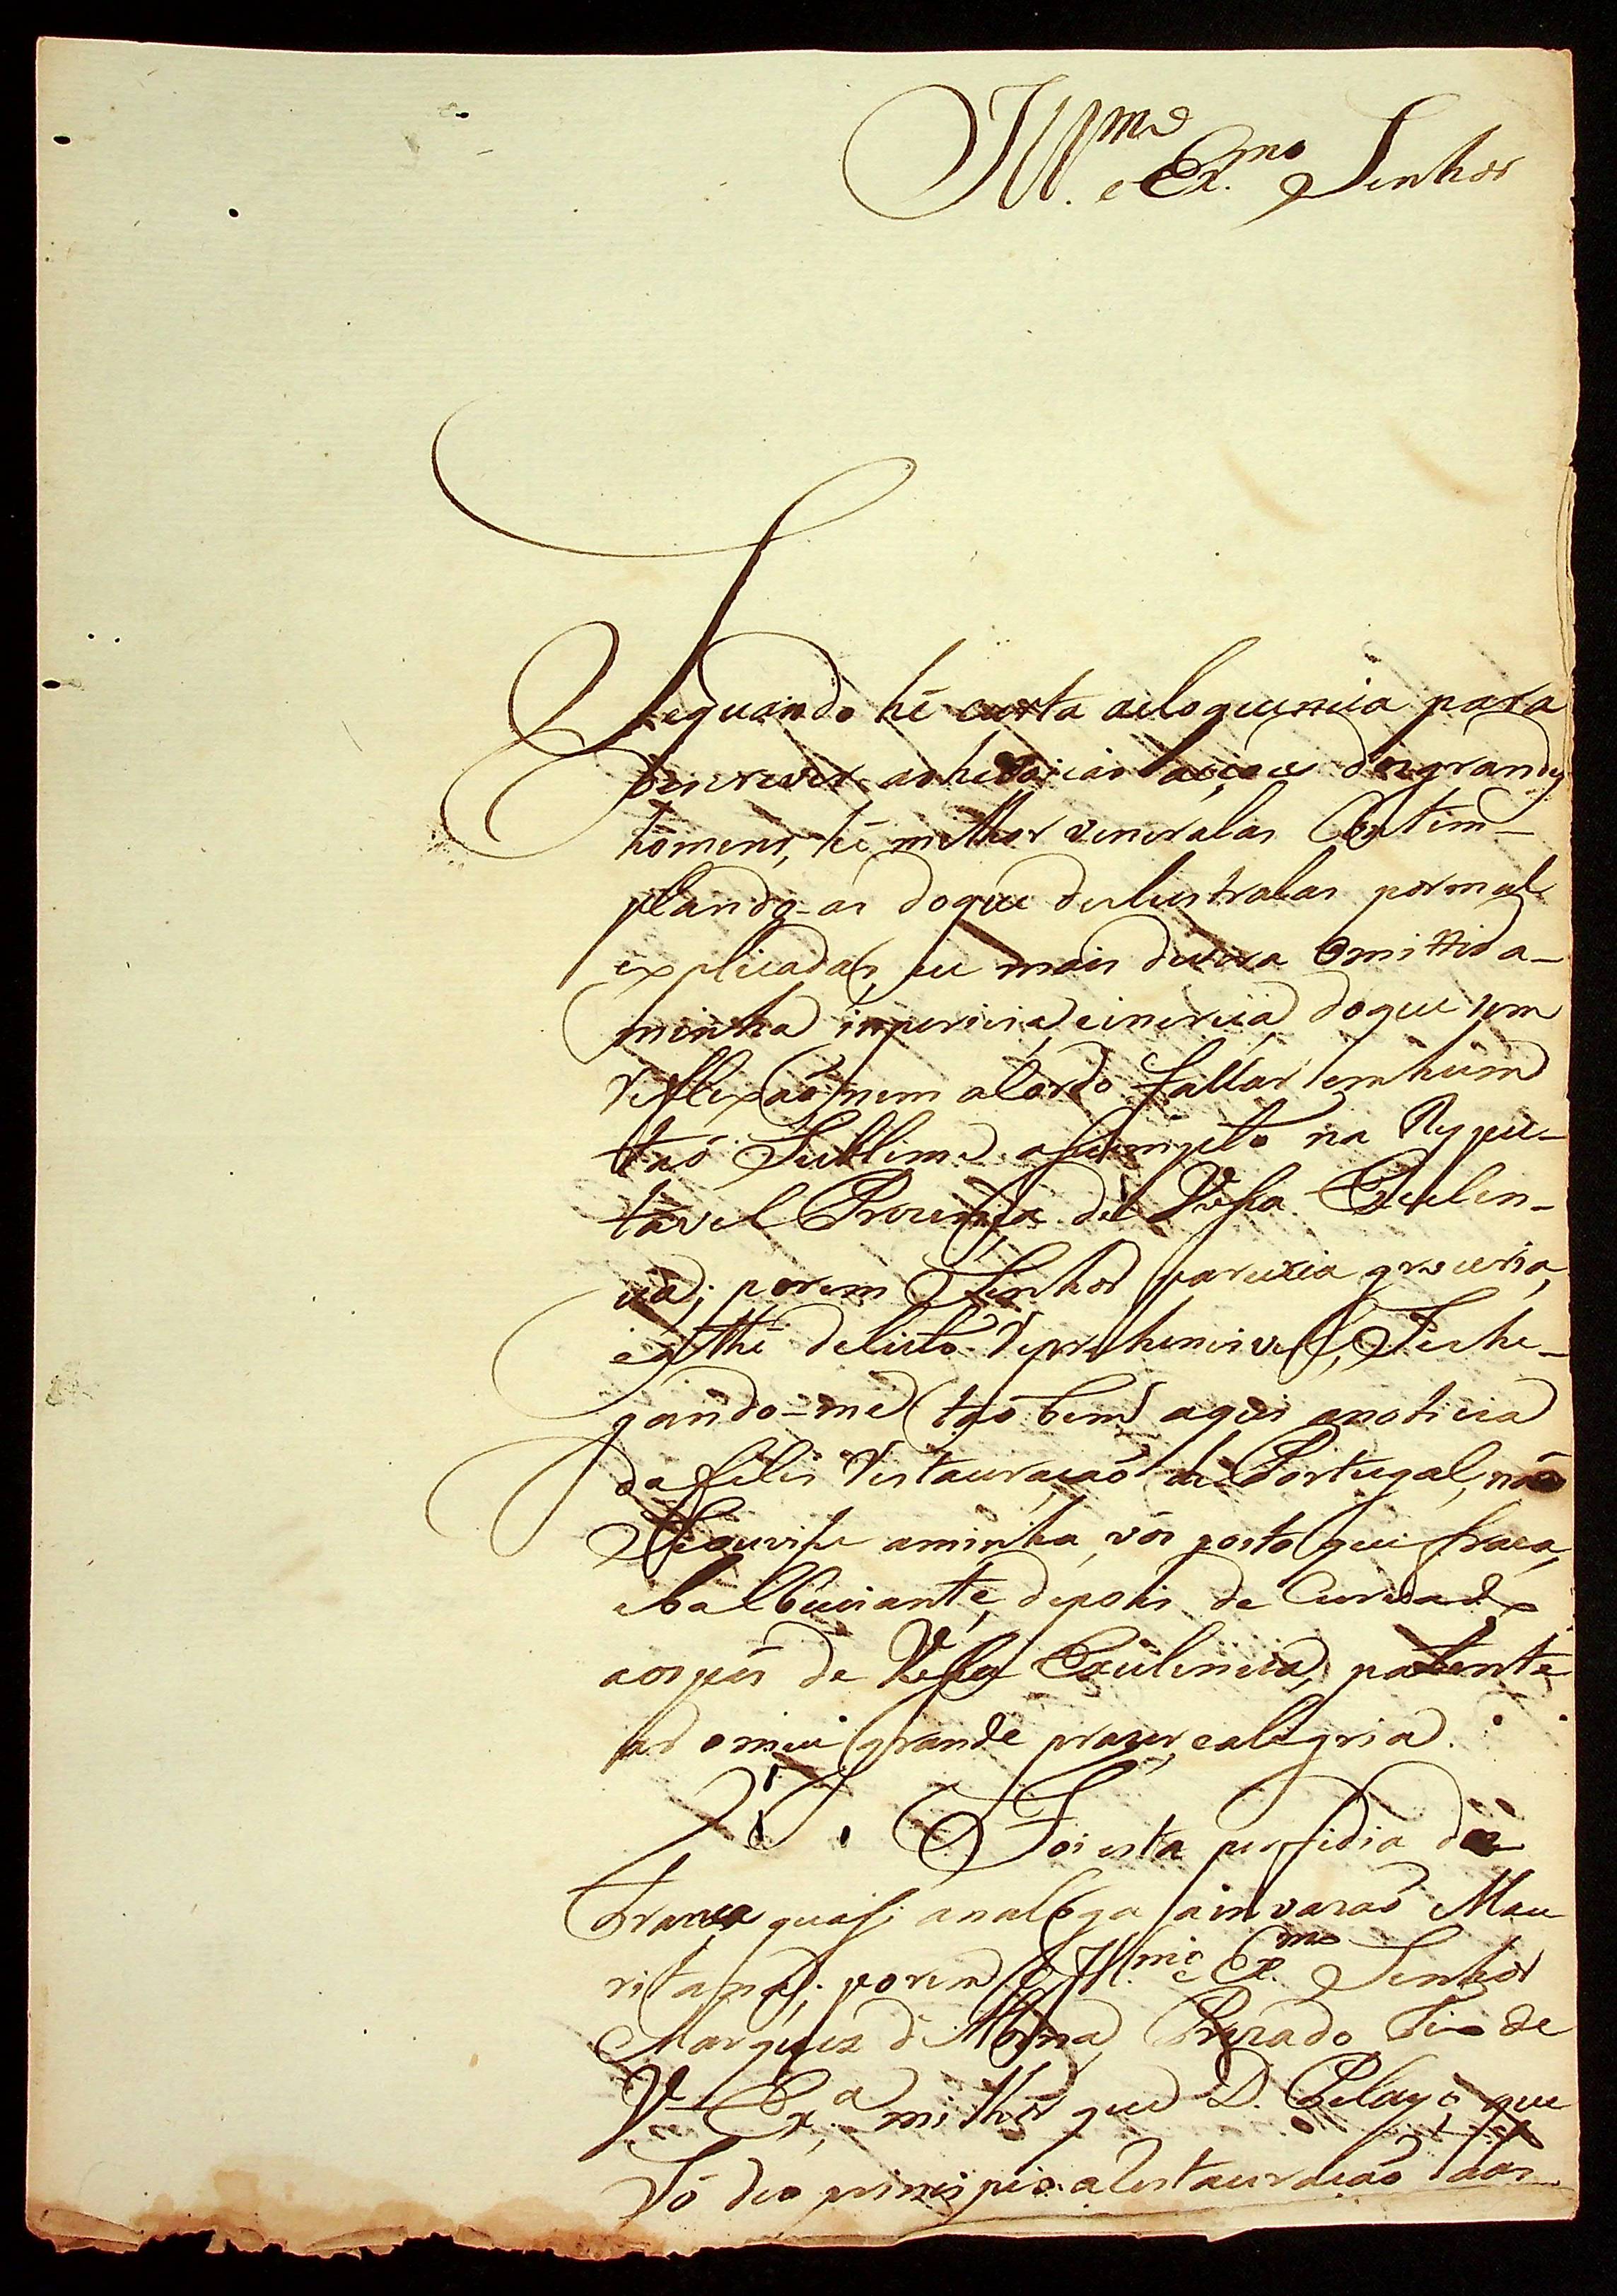 Ill.mo e Ex.mo Senhor
Se quando hé curta aeloquencia para
descrever as heroicas acçoes dos grandes
hómens, hé melhor veneralas Contem-
plando-as doque deslustralas por mal
explicadas, eu mais devera Omittir a-
minha impericia, einercia, doque sem
reflexaõ, nem acordo fallar em hum
taõ Sublime assumpto na Respei-
tavel Prezença de Vossa Excelen-
cia; porem Senhor pareceria groceria,
eathé delicto reprehensivel, Se che-
gando-me taõ bem aqui anoticia
da felis restauraçaõ de Portugal, naõ
Se ouvisse aminha vós posto que fraca,
ebalbuciante, depois de Curvado
aospés de Vossa Excelencia, patente
ar omeu grande prazer, ealegria.
Foi esta perfidia da
França quasi analoga á invazaõ Mau
ritana; porem o Ill.mo e Ex.mo Senhor
Marques d'Alorna, Prezado Tio de
V. Ex.a, milhór que D. Pelayo, que
Só deo principio a restauraçaõ das